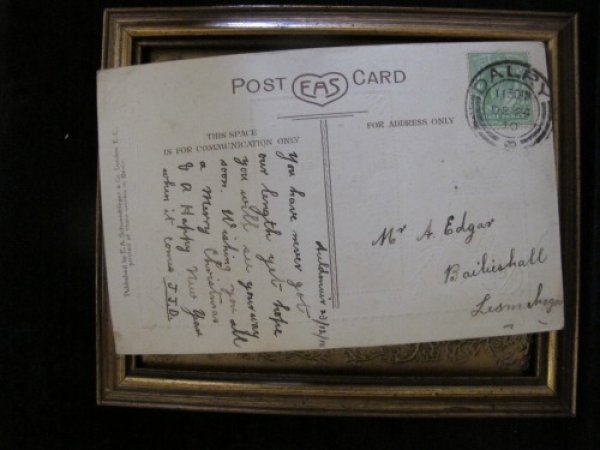 POST EAS CARD
THIS SPACE
IS FOR COMMUNICATION ONLY
FOR ADDRESS ONLY
DALRY
11 30AM
DE 24
10
Auldmuir 23/12/10
You have never got
our length yet hope
you will see your way
soon. Wishing you all
a Merry Christmas
& a Happy New Year
when it comes J.J.D.
Mr A. Edgar
Bailieshall
Lesmahagow
Published by E.A. Schwerdtfeger & Co. London E.C.